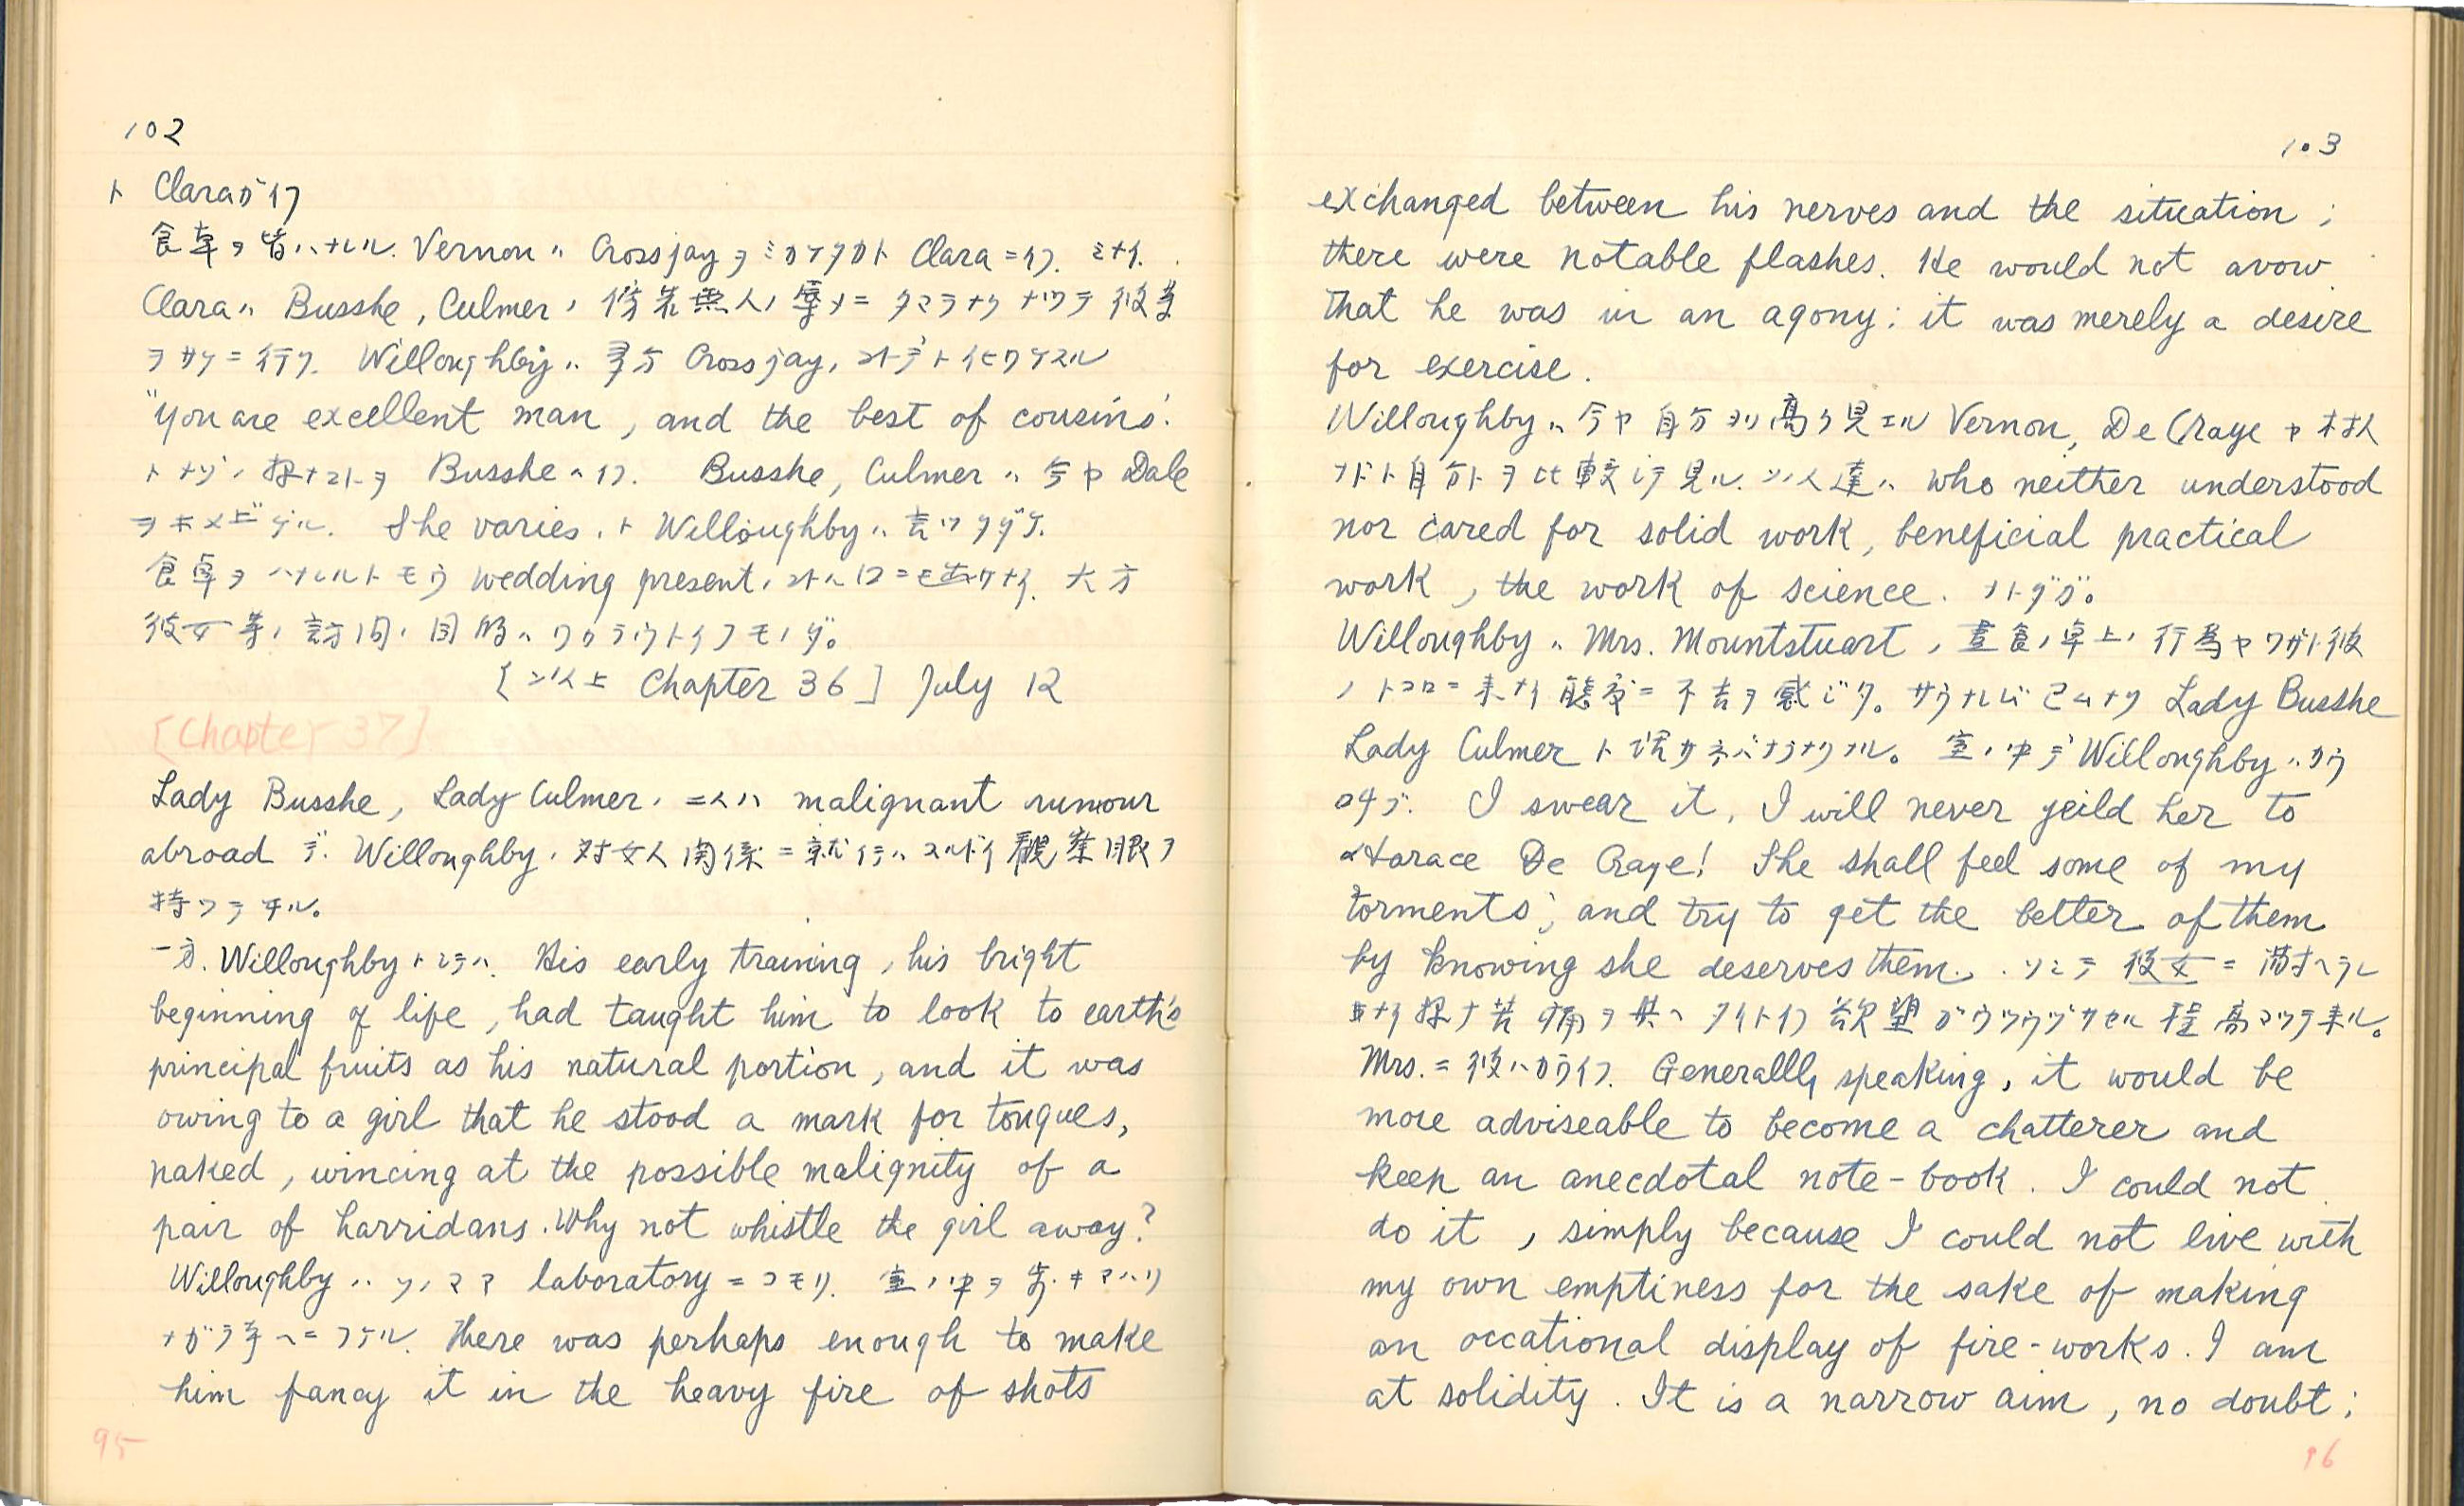 102
ト Claraガイフ
食卓ヲ皆ハナレル. Vernonハ Crossjayヲミカケタカト Clara ニイフ. ミナイ.
Claraハ Busshe, Culmerノ傍若無人ノ辱メニ タマラナクナツテ 彼等
ヲサケニ行ク. Willoughbyハ 多分 Crossjayノコトデト イヒワケスル
"You are excellent man, and the best of cousins".
トナゾノ様ナコトヲ Bussheハイフ. Busshe, Culmerハ 今ヤ Dale
ヲホメ上ゲル. She varies. ト Willoughbyハ言ツタゲナ.
食卓ヲハナレルトモウ wedding presentノコトハ口ニモ出サナイ. 大方
彼女等ノ訪問ノ目的ハワカラウトイフモノダ。
[以上 Chapter 36] July 12
[Chapter 37]
Lady Busshe, Lady Culmerノ二人ハ malignant rumour
abroad デ. Willoughbyノ対女人関係ニ就テハスルドイ観察眼ヲ
持ツテヰル。
一方. Willoughbyトシテハ. His early training, his bright
beginning of life, had taught him to look to earth's
principal fruits as his natural portion, and it was
owing to a girl that he stood a mark for tongues,
naked, wincing at the possible malignity of a
pair of harridans. Why not whistle the girl away?
Willoughbyハ ソノママ laboratoryニコモリ. 室ノ中ヲ歩キマハリ
ナガラ考ヘニフケル. There was perhaps enough to make
him fancy it in the heavy fire of shots
95
103
exchanged between his nerves and the situation;
there were notable flashes. He would not avow
that he was in an agony: it was merely a desire
for exercise.
Willoughbyハ今ヤ自分ヨリ高ク見エル Vernon, De Craye ヤ
ナドト自分トヲ比較シテ見ル. 人達ハ who neither understood
nor cared for solid work, beneficial practical
work, the work of science. ナトダ。
Willoughbyハ Mrs. Mountstuartノ昼食ノ卓上ノ行為ヤワザト彼
ノトコロニ来ナイ態度ニ不吉ヲ感ジタ。サウナレバ已ムナク Lady Busshe
Lady Culmer ト話サネバナラナクナル。室ノ中デ Willoughbyハカウ
I swear it, I will never yeild her to
Horace De Craye! She shall feel some of my
torments, and try to get the better of them
by knowing she deserves them. ソシテ彼女ニ
ナイ様ナ苦痛ヲ与ヘタイトイフ欲望ガウツウヅサセル程高マツテ来ル。
Mrs.ニ彼ハカウイフ. Generallly speaking, it would be
more adviseable to become a chatterer and
keep an anecdotal note-book. I could not
do it, simply because I could not live with
my own emptiness for the sake of making
an occational display of fire-works. I am
at solidity. It is a narrow aim, no doubt;
96